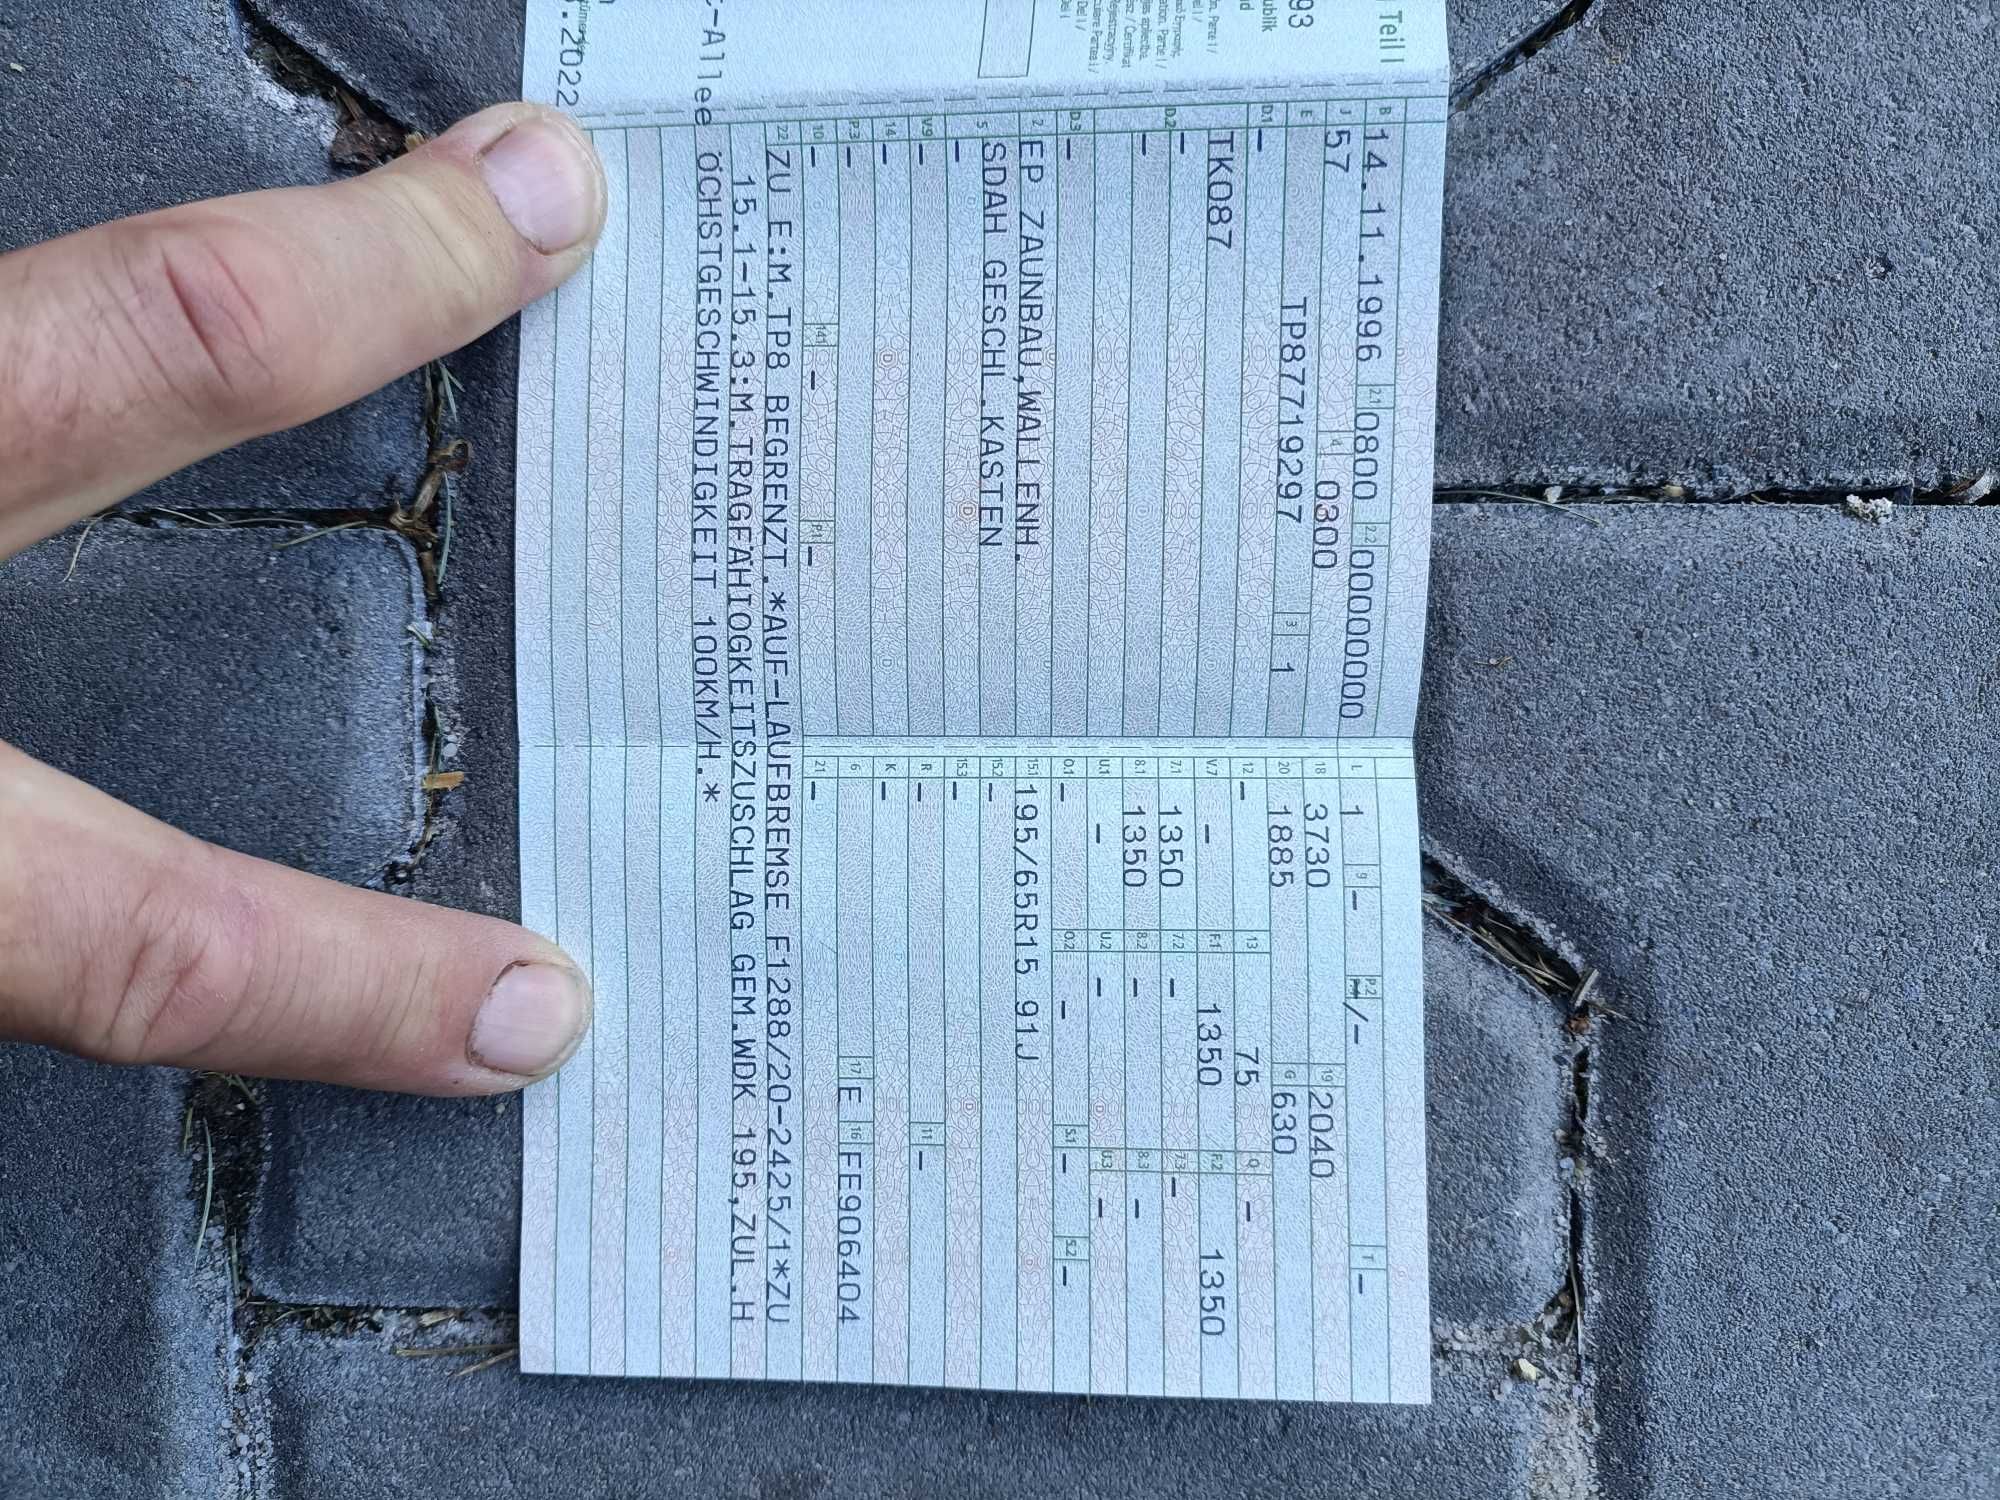 Teil I
93
ublik
-Allee
.2022
B 14.11.1996 2.1 0800 2.2 00000000
J 57 4 0300
E TP87719297 3 1
D.1 -
TK087
D.2 -
-
D.3 -
2 EP ZAUNBAU,WALLENH.
5 SDAH GESCHL.KASTEN
-
V.9 -
14 -
P.3 -
10 - 14.1 - P.1 -
L 1 9 - P.2 P.4 -/- T -
18 3730 19 2040
20 1885 G 630
12 - 13 75 Q -
V.7 - F.1 1350 F.2 1350
7.1 1350 7.2 - 7.3 -
8.1 1350 8.2 - 8.3 -
U.1 - U.2 - U.3 -
O.1 - O.2 - S.1 - S.2 -
15.1 195/65R15 91J
15.2 -
15.3 -
R - 11 -
K -
6 17 E 16 FE906404
21 -
22 ZU E:M.TP8 BEGRENZT.*AUF-LAUFBREMSE F1288/20-2425/1*ZU
15.1-15.3:M.TRAGFÄHIOGKEITSZUSCHLAG GEM.WDK 195,ZUL.H
ÖCHSTGESCHWINDIGKEIT 100KM/H.*